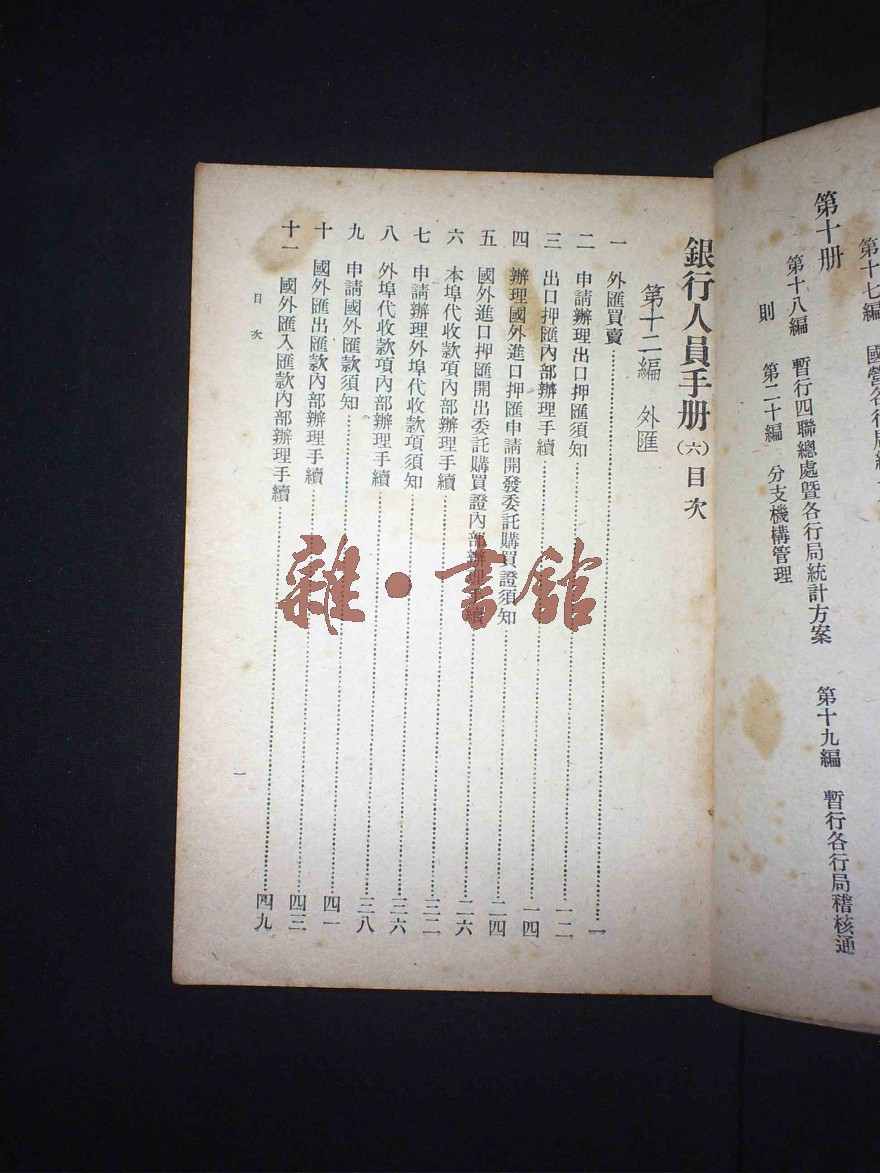 第十七編　國營各行局
第十册
第十八編　暫行四聯總處暨各行局統計方案　第十九編　暫行各行局稽核通
則　第二十編　分支機構管理
銀行人員手册（六）目次
第十二編　外匯
一　外匯買賣……一
二　申請辦理出口押匯須知……一二
三　出口押匯內部辦理手續……一四
四　辦理國外進口押匯申請開發委託購買證須知……二四
五　國外進口押匯開出委託購買證內部辦理手續……二六
六　本埠代收款項內部辦理手續……三二
七　申請辦理外埠代收款項須知……三六
八　外埠代收款項內部辦理手續……三八
九　申請國外匯款須知……四一
十　國外匯出匯款內部辦理手續……四三
十一　國外匯入匯款內部辦理手續……四九
目次
一
雜·書館